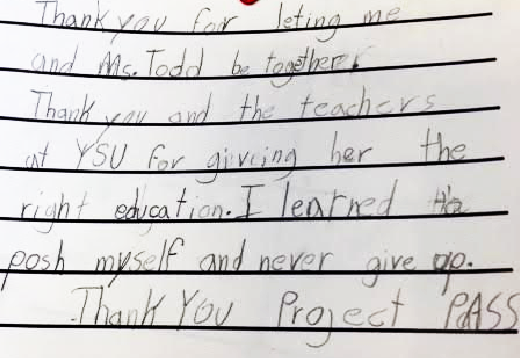 Thank you for leting me
and Ms. Todd be together
Thank you and the teachers
at YSU for givcing her the
right education. I learned tha
posh myself and never give up.
Thank YOU Project PASS